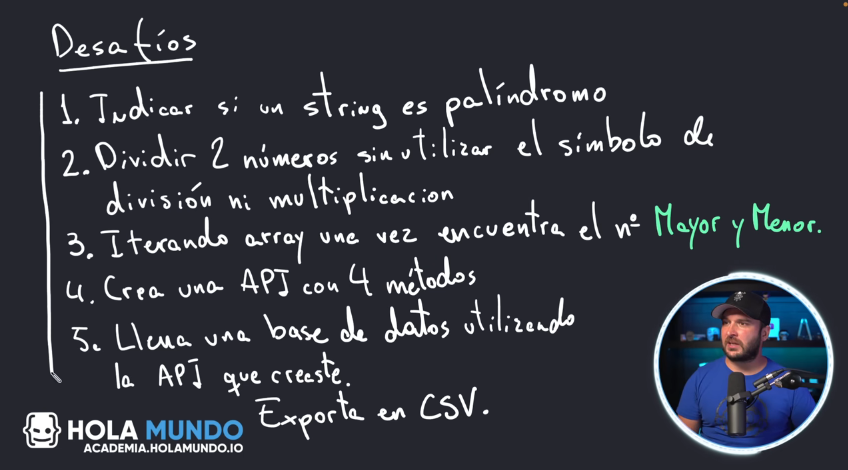 Desafíos
1. Indicar si un string es palíndromo
2. Dividir 2 números sin utilizar el símbolo de
división ni multiplicacion
3. Iterando array una vez encuentra el nº Mayor y Menor.
4. Crea una API con 4 métodos
5. Llena una base de datos utilizando
la API que creaste.
Exporta en CSV.
HOLA MUNDO
ACADEMIA.HOLAMUNDO.IO